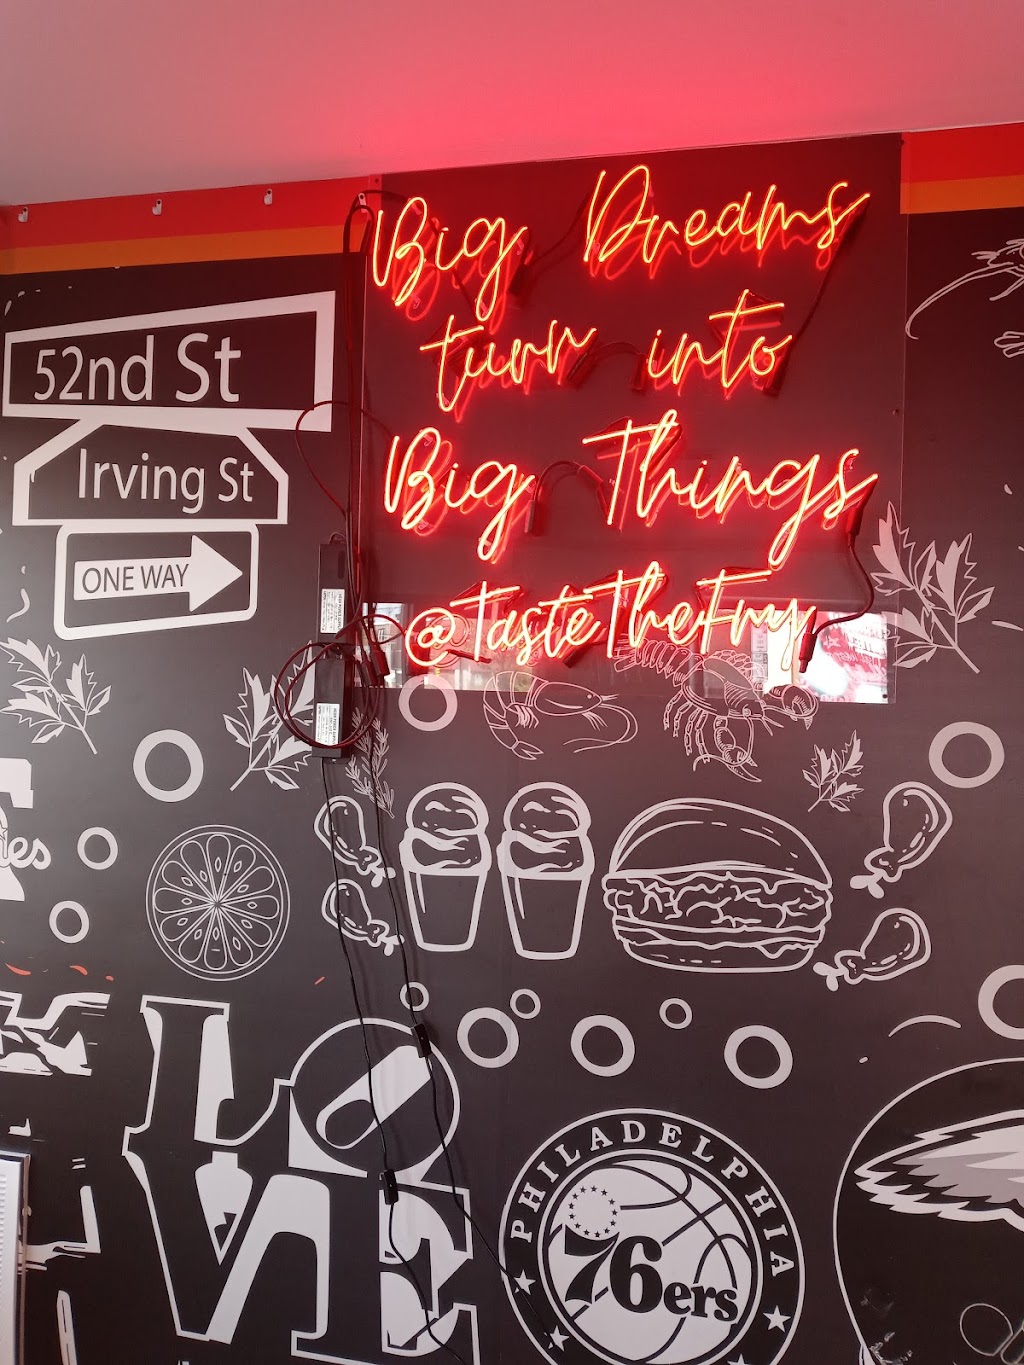 Big Dreams
turn into
Big Things
@TasteTheFry
52nd St
Irving St
ONE WAY
LOVE
PHILADELPHIA
76ers